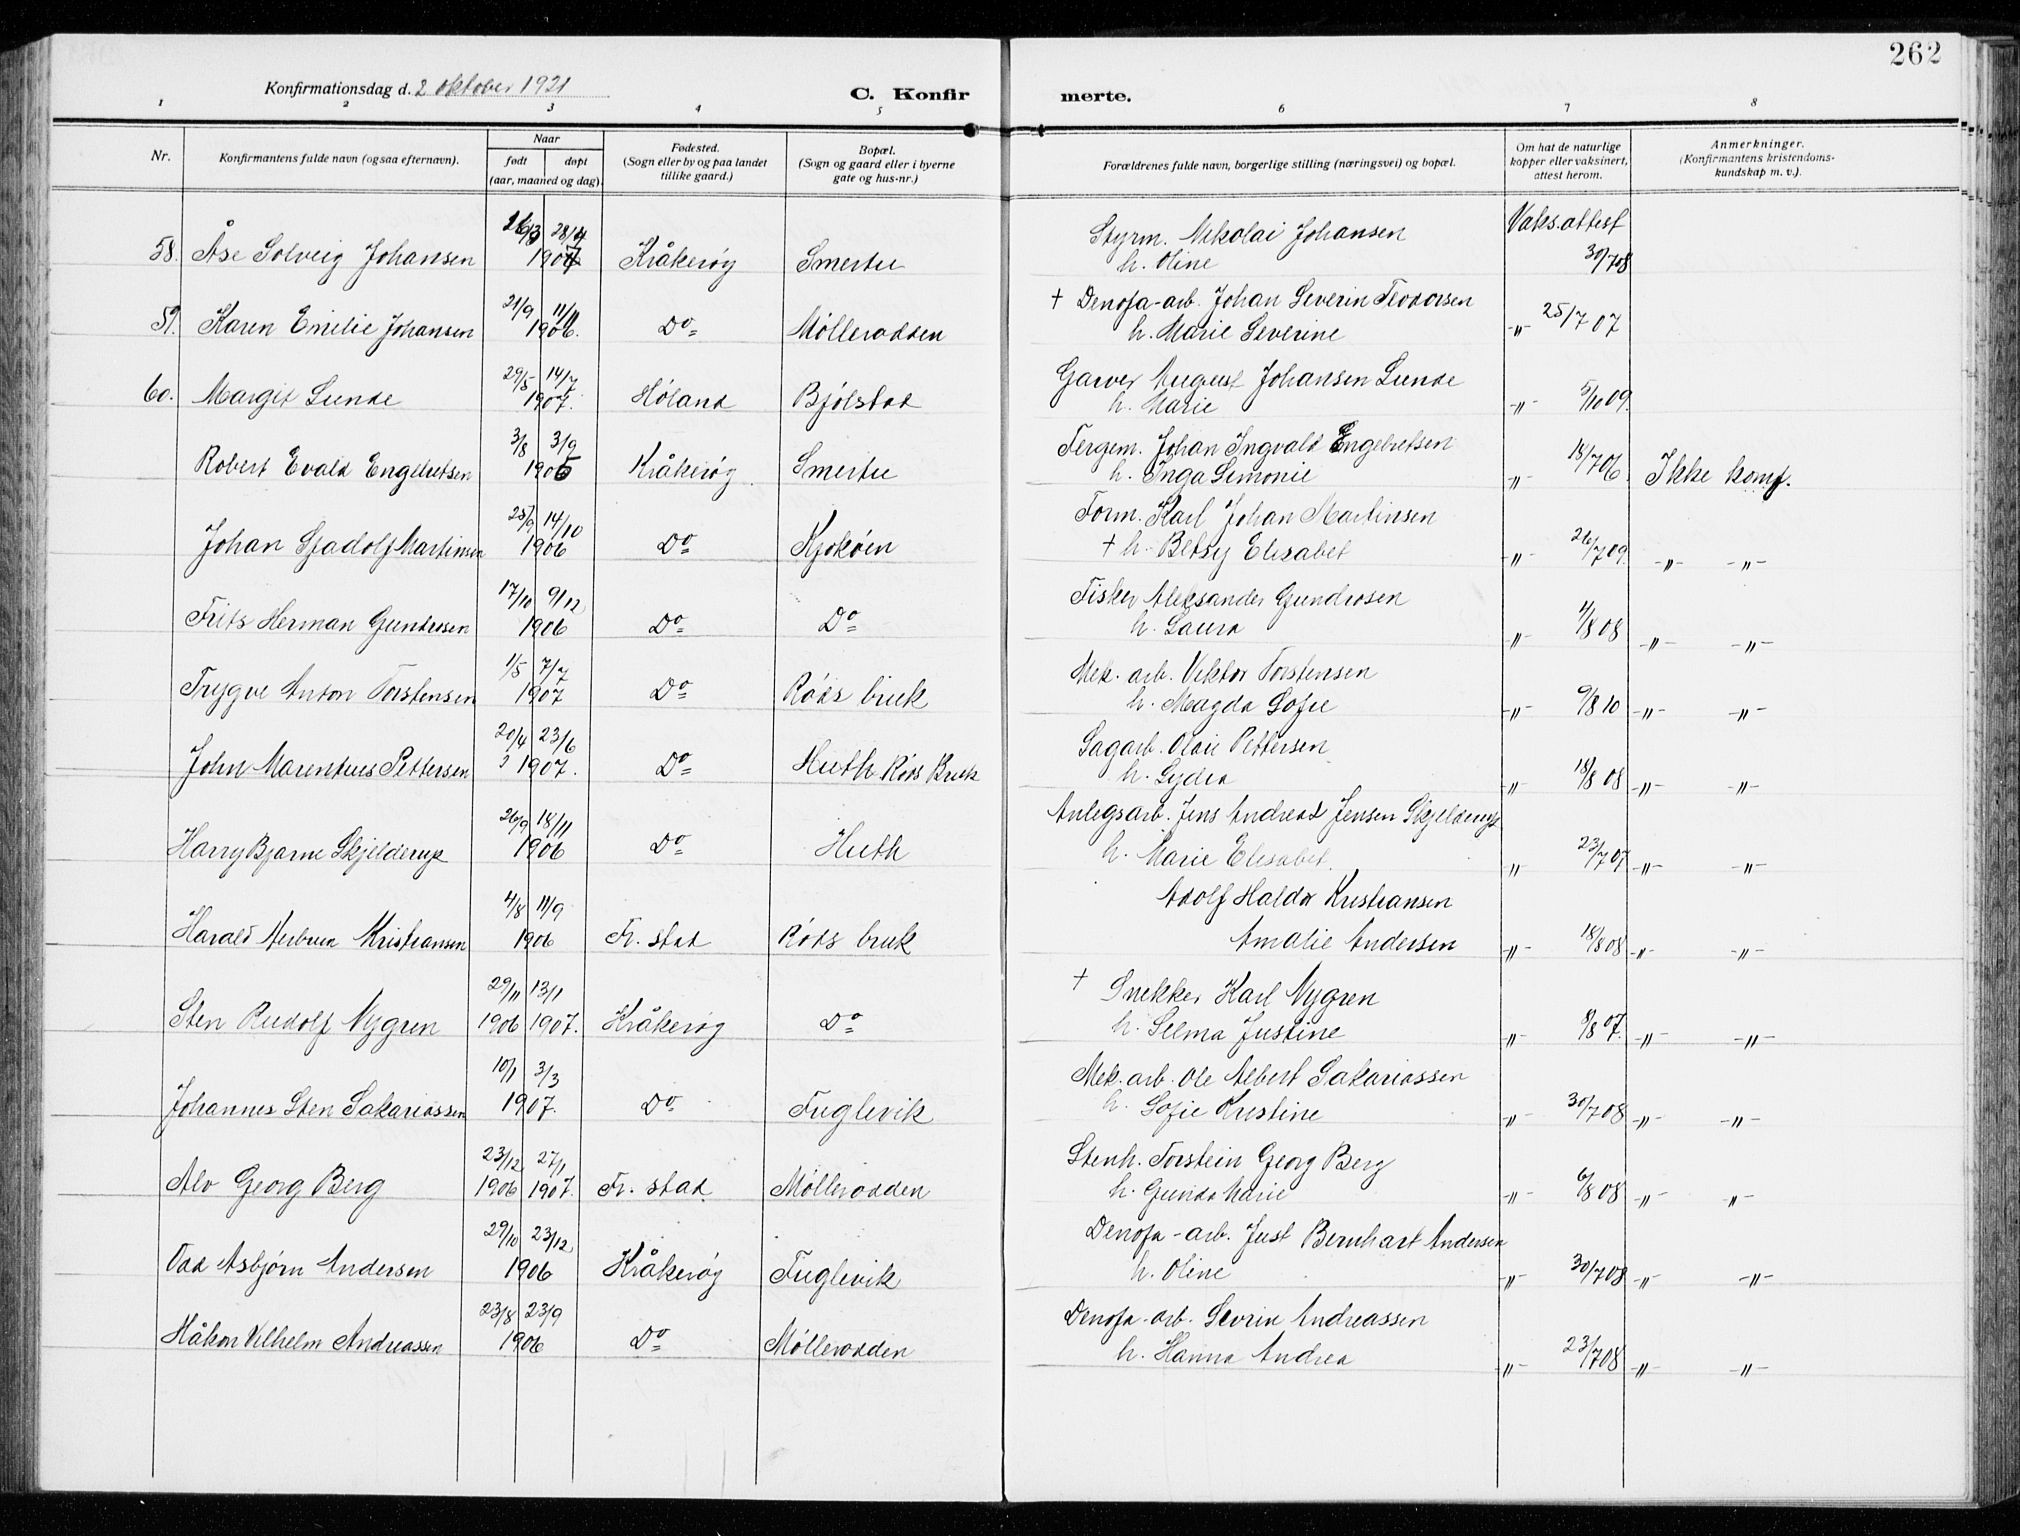 262
Konfirmationsdag d. 2 oktober 1921
C. Konfir merte.
1 2 3 4 5 6 7 8
Nr.
Konfirmantens fulde navn (ogsaa efternavn).
Naar
født døpt
(aar, maaned og dag).
Fødested.
(Sogn eller by og paa landet
tillike gaard.)
Bopæl.
(Sogn og gaard eller i byerne
gate og hus-nr.)
Forældrenes fulde navn, borgerlige stilling (næringsvei) og bopæl.
Om hat de naturlige
kopper eller vaksinert,
attest herom.
Anmerkninger.
(Konfirmantens kristendoms-
kundskap m. v.).
26/3 28/4 Styrm. Nikolai Johansen Vaks.attest
58. Åse Solveig Johansen 1907 Kråkerøy Smertu h. Oline 30/7 08
21/9 11/11 † Denofa-arb. Johan Severin Teodorsen
59. Karen Emilie Johansen 1906. Do Møllerodden h. Marie Severine -"- 25/7 07
29/5 14/7 Garver August Johansen Lunde
60. Margit Lunde 1907. Høland Bjølstad h. Marie -"- 5/10 09.
3/8 3/9 Fergem. Johan Ingvald Engebretsen
Robert Evald Engebretsen 1905 Kråkerøy Smertu h. Inga Simonie -"- 18/7 06. Ikke komf.
25/9 14/10 Form. Karl Johan Martinsen
Johan Martinsen 1906 Do Kjøkøen † h. Betsy Elisabet -"- 26/7 09. -"- -"-
17/10 9/12 Fisker Aleksander Gundrosen
Frits Herman Gundrosen 1906 Do Do h. Laura -"- 4/8 08 -"- -"-
1/5 7/7 Mek. arb. Viktor Torstensen
Trygve Anton Torstensen 1907 Do Røds bruk h. Magda Sofie -"- 9/8 10 -"- -"-
20/4 23/6 Sagarb. Olaie Pettersen
John Marentius Pettersen 1907. Do Huth Røds Bruk h. Lydia -"- 18/8 08 -"- -"-
26/9 18/11 Anlegsarb. Jens Andreas Jensen Skjelderup
Harry Bjarne Skjelderup 1906 Do Huth h. Marie Elisabet. " 23/7 07 -"- -"-
4/8 11/9 Adolf Haldor Kristiansen
Harald Kristiansen 1906 Fr. stad Røds bruk Amalie Andersen -"- 18/8 08 -"- -"-
29/11 13/1 † Snekker Karl Nygren
Sten Rudolf Nygren 1906 1907. Kråkerøy Do h. Selma Justine -"- 8/8 07. -"- -"-
10/1 3/3 Mek. arb. Ole Albert Sakariassen
Johannes Sten Sakariassen 1907. Do Fuglevik h. Sofie Kristine -"- 30/7 08 -"- -"-
23/12 27/1 Stenh. Torstein Georg Berg
Alv Georg Berg 1906 1907. Fr. stad Møllerodden h. Gunda Marie -"- 6/8 08 -"- -"-
29/10 23/12 Denofa-arb. Just Bernhart Andersen
Odd Asbjørn Andersen 1906 Kråkerøy Fuglevik h. Oline -"- 30/7 08 -"- -"-
23/8 23/9 Denofa-arb. Sevrin Andreassen
Håkon Vilhelm Andreassen 1906 Do Møllerodden h. Hanna Andrea -"- 23/7 08 -"- -"-